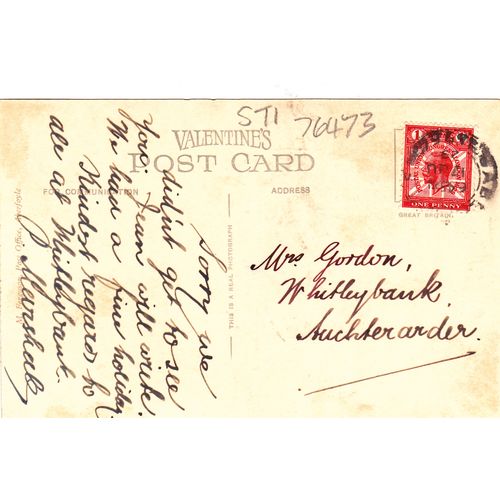 STI 76473
VALENTINE'S
POST CARD
FOR COMMUNICATION
ADDRESS
THIS IS A REAL PHOTOGRAPH
1
ONE PENNY
GREAT BRITAIN.
Sorry we
didn't get to see
you. Jean will write.
We had a fine holiday
Kindest regards to
all at Whitleybank.
Marshall
Mrs Gordon,
Whitleybank,
Auchterarder.
Post Office, Aberfoyle